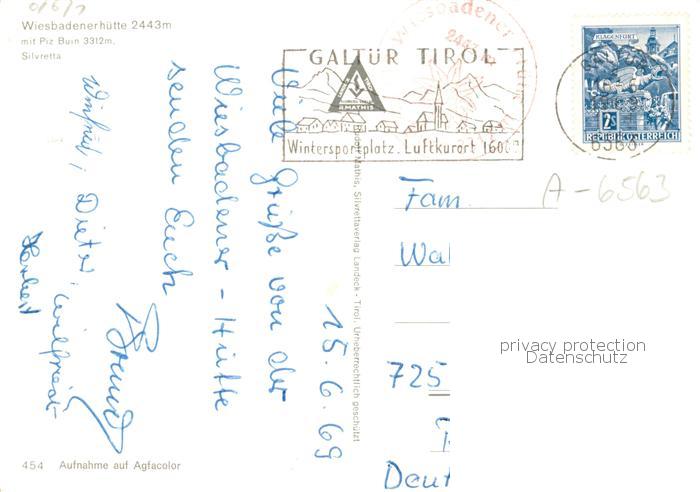 Wiesbadenerhütte 2443m
mit Piz Buin 3312m,
Silvretta
GALTÜR TIROL
R.MATHIS
Wintersportplatz. Luftkurort 1600m
Wiesbadener
KLAGENFURT
2S
REPUBLIK ÖSTERREICH
A-6563
15.6.69
Viele Grüße von der
Wiesbadener-Hütte
senden Euch
Winfried, Dieter, Wilfried
Herbert
Mathis, Silvrettaverlag Landeck - Tirol. Urheberrechtlich geschützt
Fam.
Wal
725
Deut
privacy protection
Datenschutz
454 Aufnahme auf Agfacolor